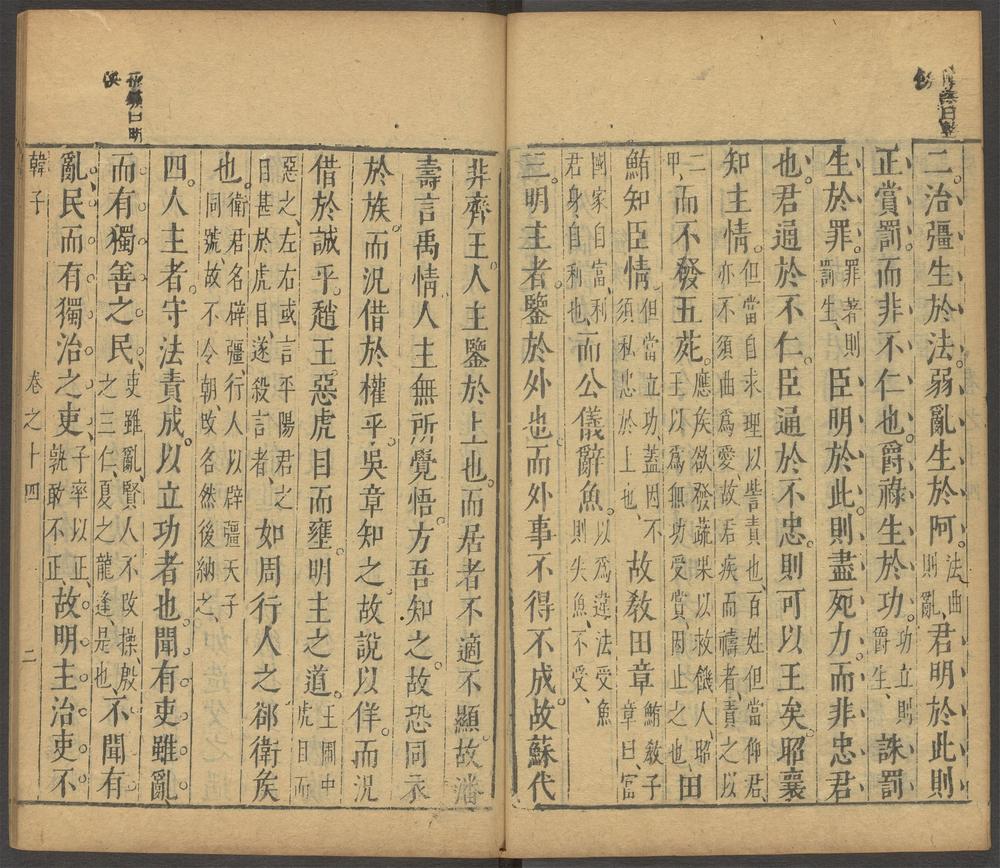 二治彊生於法弱亂生於阿法曲則亂君明於此則
正賞罰而非不仁也爵祿生於功功立則爵生誅罰
生於罪罪著則罰生臣明於此則盡死力而非忠君
也君通於不仁臣通於不忠則可以王矣昭襄
知主情但當自求理以訾責也百姓但當仰君亦不須曲為愛故君疾而禱者責之以
二甲而不發五苑應侯欲發蔬果以救饑人昭王以為無功受賞因止之也田
鮪知臣情但當立功蓋因不須私忠於上也故敎田章鮪敎子章曰富
國家自富利君身自利也而公儀辭魚以為違法受魚則失魚不受
三明主者鑒於外也而外事不得不成故蘇代
非齊王人主鑒於上也而居者不適不顯故潘
壽言禹情人主無所覺悟方吾知之故恐同衣
於族而況借於權乎吳章知之故說以佯而況
借於誠乎趙王惡虎目而壅明主之道王圃中虎目而
惡之左右或言平陽君之目甚於虎目遂殺言者如周行人之郤衛矦
也衛君名辟彊行人以辟疆天子同號故不令朝攺名然後納之
四人主者守法責成以立功者也聞有吏雖亂
而有獨善之民吏雖亂賢人不攺操殷之三仁夏之龍逢是也不聞有
亂民而有獨治之吏子率以正孰敢不正故明主治吏不
韓子 卷之十四 二